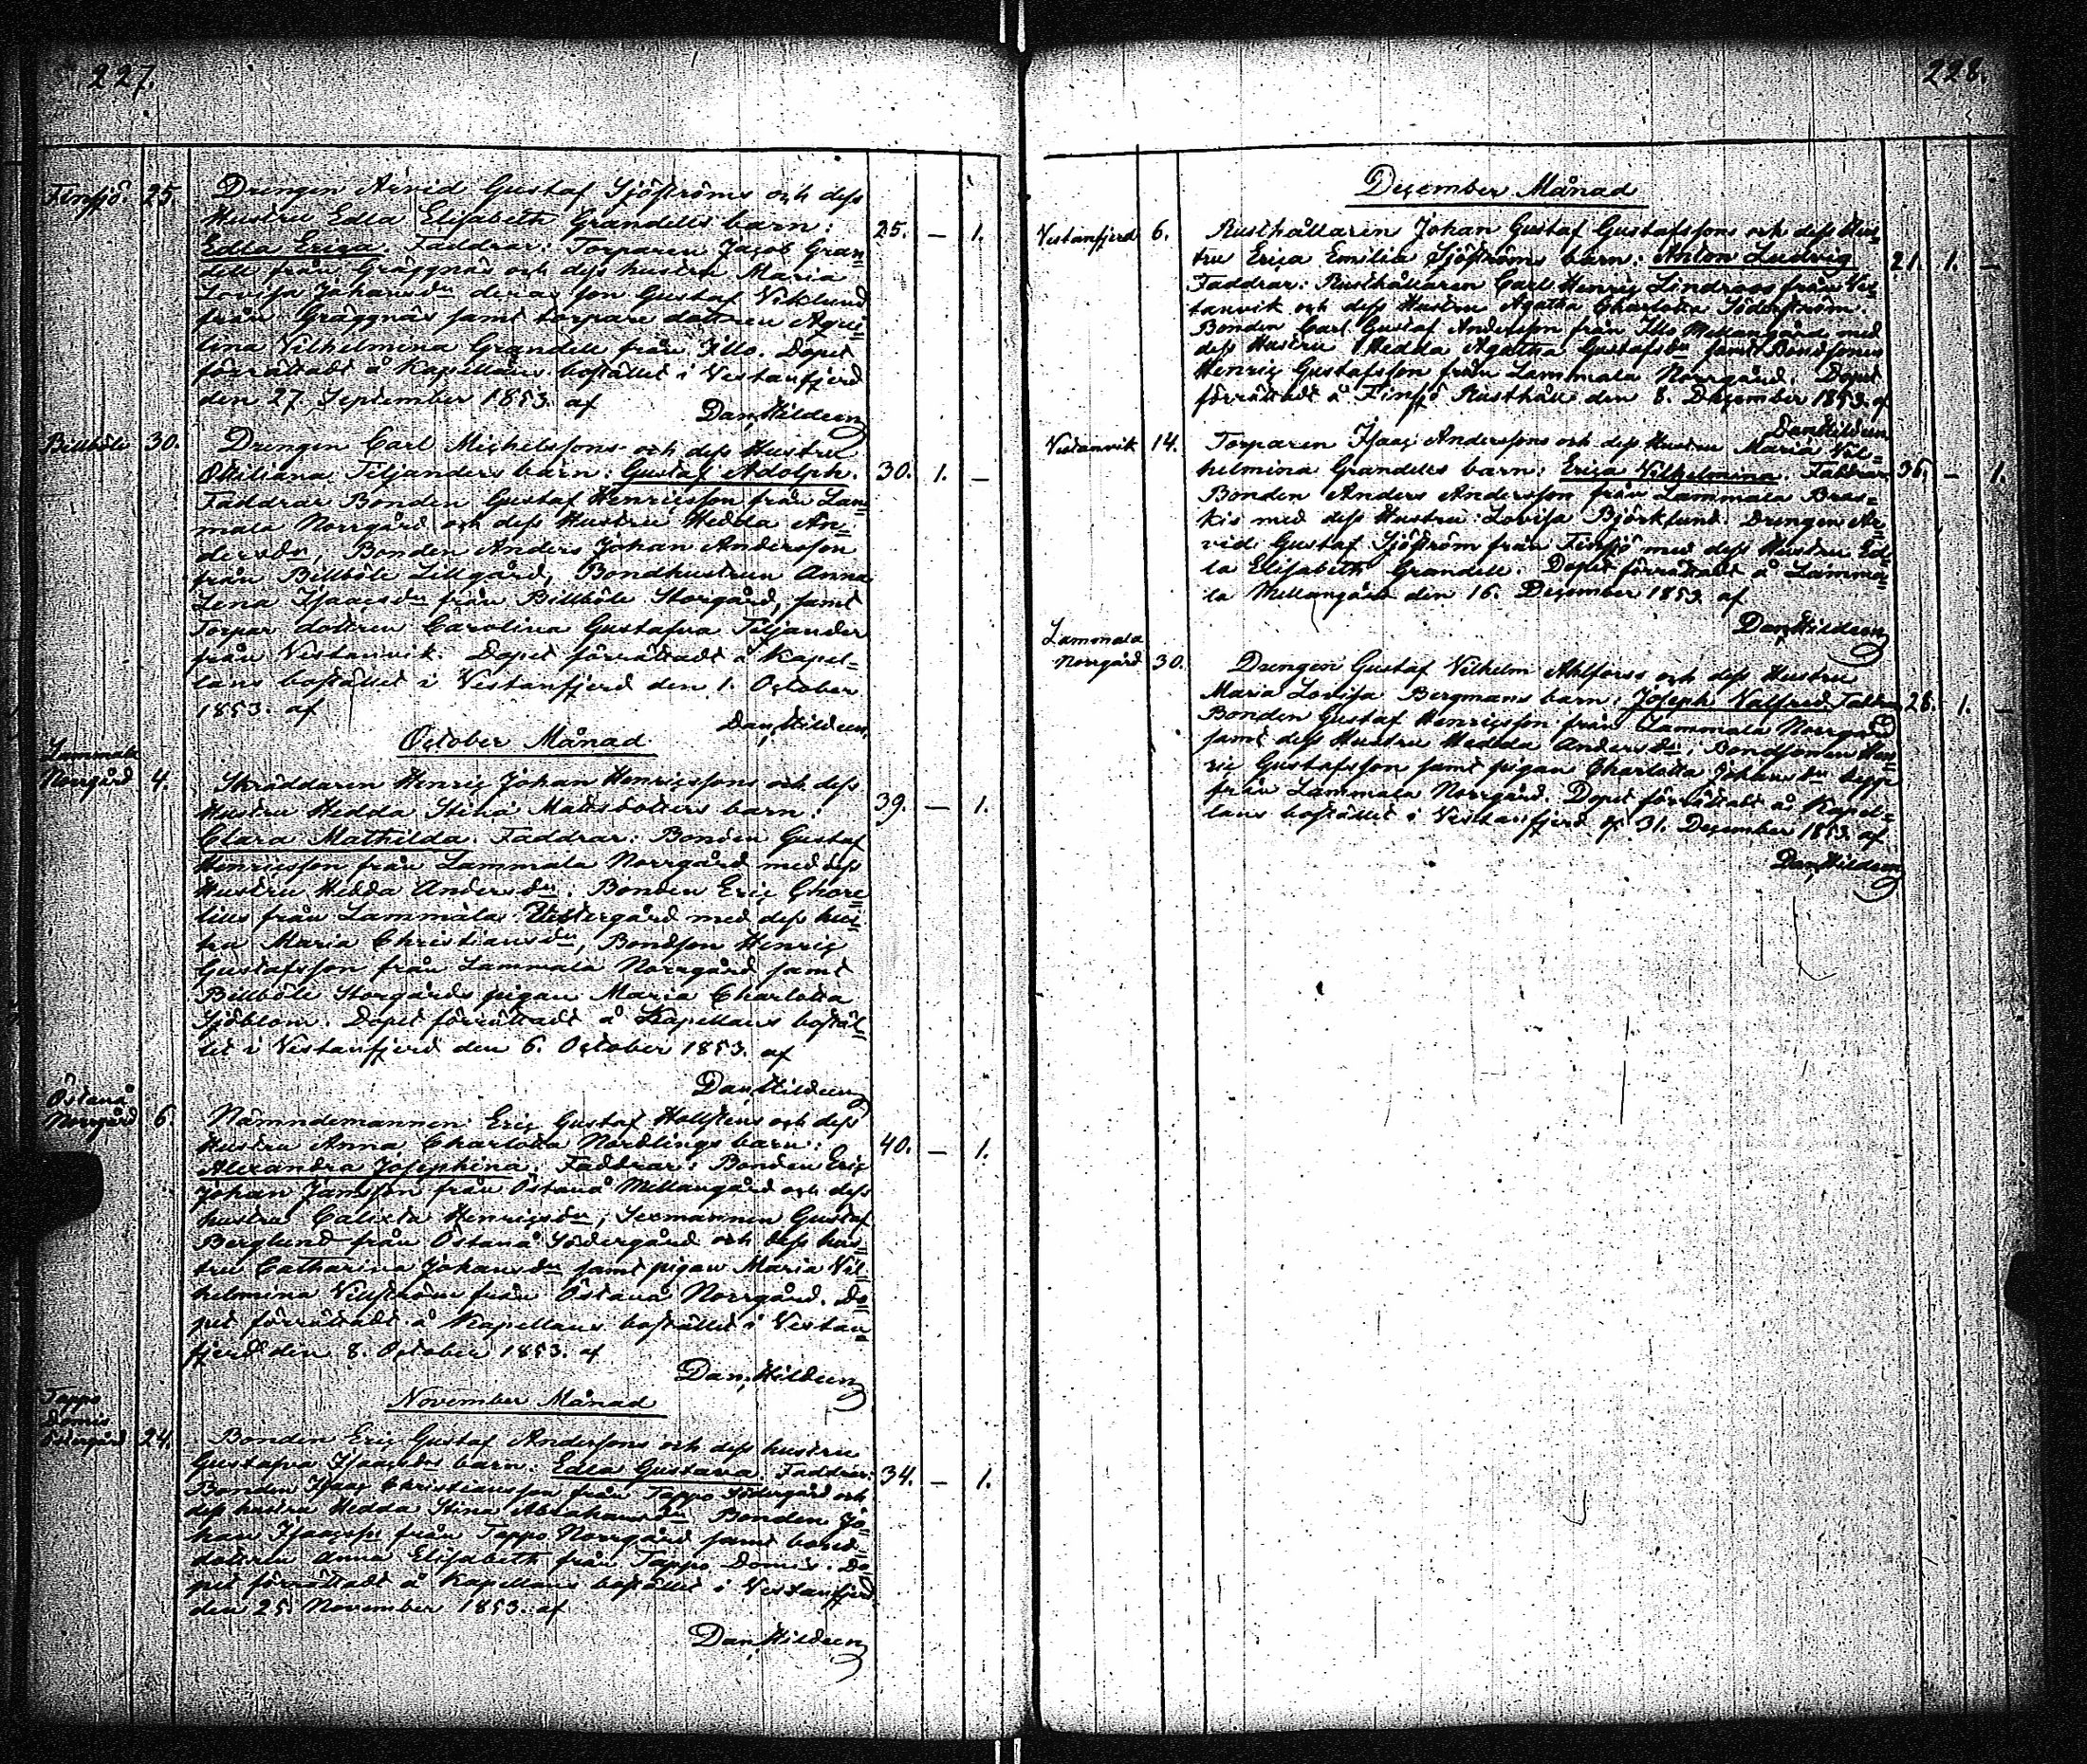 227.
Finsjö. 25. Drengen Arvid Gustaf Sjöströms och dess
Hustru Edla Elisabeth Grandells barn: 25. — 1.
Edla Erica. Faddrar: Torparen Jacob Gran=
dell från Gräggnäs och dess hustru Maria
Lovisa Johansdr deras son Gustaf Viklund
från Gräggnäs samt torpare dottren Aqvi=
lina Vilhelmina Grandell från Illo. Dopet
förrättadt å Kapellans bostället i Vestanfjerd
den 27 September 1853. af
Dan, Hildeen
Billböle 30. Drengen Carl Michelssons och dess Hustru
Ottiliana Teljanders barn: Gustaf Adolph. 30. 1. —
Faddrar Bonden Gustaf Henricsson från Lam=
mala Norrgård och dess Hustru Hedda An=
dersdr, Bonden Anders Johan Andersson
från Billböle Lillgård, Bondhustrun Anna
Lena Isaacsdr från Billböle Storgård, samt
Torpar dottren Carolina Gustafva Teljander
från Vestanvik. Dopet förrättadt å Kapel=
lans bostället i Vestanfjerd den 1. October
1853. af
Dan, Hildeen
October Månad
Lammala
Norrgård 4. Skräddaren Henric Johan Henricssons och dess
Hustru Hedda Stina Mattsdotters barn: 39. — 1.
Clara Mathilda. Faddrar: Bonden Gustaf
Henricsson från Lammala Norrgård med dess
Hustru Hedda Andersdr. Bonden Eric Chore
lius från Lammala Vestergård med dess hus=
tru Maria Christiansdr, Bondson Henric
Gustafsson från Lammala Norrgård samt
Billböle Storgårds pigan Maria Charlotta
Sjöblom. Dopet förrättadt å Kapellans bostäl=
let i Vestanfjerd den 6. October 1853. af
Dan, Hildeen
Östanå
Norrgård 6. Nämndemannen Eric Gustaf Hollstens och dess
Hustru Anna Charlotta Nordlings barn: 40. — 1.
Alexandra Josephina. Faddrar: Bonden Eric
Johan Jansson från Östanå Mellangård och dess
hustru Calixta Henricsdr, Sexmannen Gustaf
Berglund från Östanå Södergård och dess hus=
tru Catharina Johansdr samt pigan Maria Vil=
helmina från Östanå Norrgård. Do=
pet förrättadt å Kapellans bostället i Vestan=
fjerd den 8. October 1853. af
Dan, Hildeen
November Månad
Tappo
Domis
Södergård 24. Bonden Eric Gustaf Anderssons och dess hustru
Gustafva Isaacsdrs barn: Edla Gustava. Faddrar: 34. — 1.
Bonden Isaac Christiansson från Tappo Södergård och
dess hustru Hedda Stina Abrahamsdr Bonden Jo=
han Isaacsson från Tappo Norrgård samt bond=
dottren Anna Elisabeth från Tappo Domis. Do=
pet förrättadt å Kapellans bostället i Vestanfjerd
den 25 November 1853. af
Dan, Hildeen
228.
December Månad
Vestanfjerd 6. Rusthållaren Johan Gustaf Gustafssons och dess Hus=
tru Erica Emilia Sjöströms barn: Anton Ludvig 21. 1. —
Faddrar: Rusthållaren Carl Henric Lindroos från Ves=
tanvik och dess Hustru Agatha Charlotta Söderström.
Bonden Carl Gustaf Andersson från Illo Mellangård med
dess Hustru Hedda Agatha Gustafsdr samt Bondsonen
Henric Gustafsson från Lammala Norrgård. Dopet
förrättadt å Finsjö Rusthåll den 8. December 1853. af
Dan, Hildeen
Vestanvik 14. Torparen Isaac Anderssons och dess Hustru Maria Vil=
helmina Grandells barn: Erica Vilhelmina. Faddrar 36. — 1.
Bonden Anders Andersson från Lammala Bras=
kis med dess Hustru Lovisa Björklund. Drengen Ar=
vid Gustaf Sjöström från Finsjö med dess Hustru Ed=
la Elisabeth Grandell. Dopet förrättadt å Lamma=
la Mellangård den 16. December 1853. af
Dan, Hildeen
Lammala
Norrgård 30. Drengen Gustaf Vilhelm Ahlforss och dess Hustru
Maria Lovisa Bergmans barn: Joseph Valfred. Faddrar 28. 1. —
Bonden Gustaf Henricsson från Lammala Norrgård
samt dess Hustru Hedda Andersdr, Bondsonen Hen=
ric Gustafsson samt pigan Charlotta Johansdr begge
från Lammala Norrgård. Dopet förrättadt å Kapel=
lans bostället i Vestanfjerd d. 31. December 1853. af
Dan, Hildeen